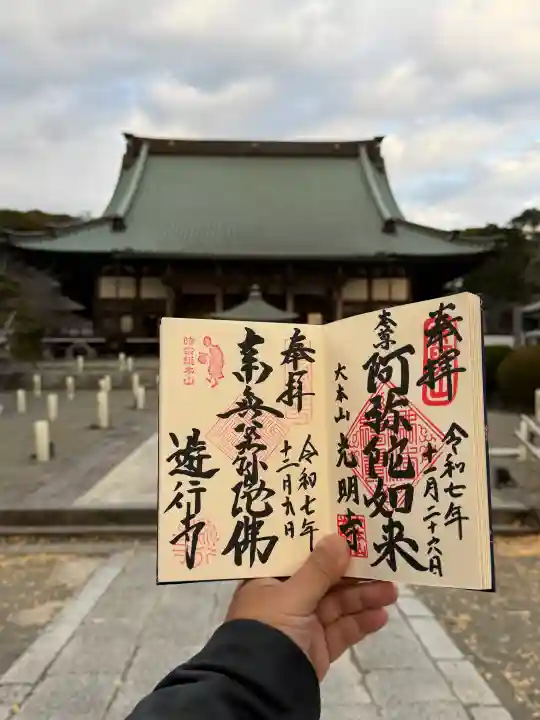 奉拝
令和七年
十一月二十六日
本尊
阿弥陀如来
大本山 光明寺
奉拝
令和七年
十二月九日
南無阿弥陀佛
時宗総本山
遊行寺